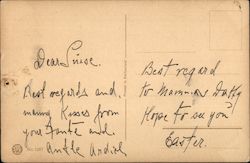 Dear Luise.
Best regards and
many Kisses from
your Tante and
Onkle
Best regard
to Mamma Daddy
Hope to see you
Easter.